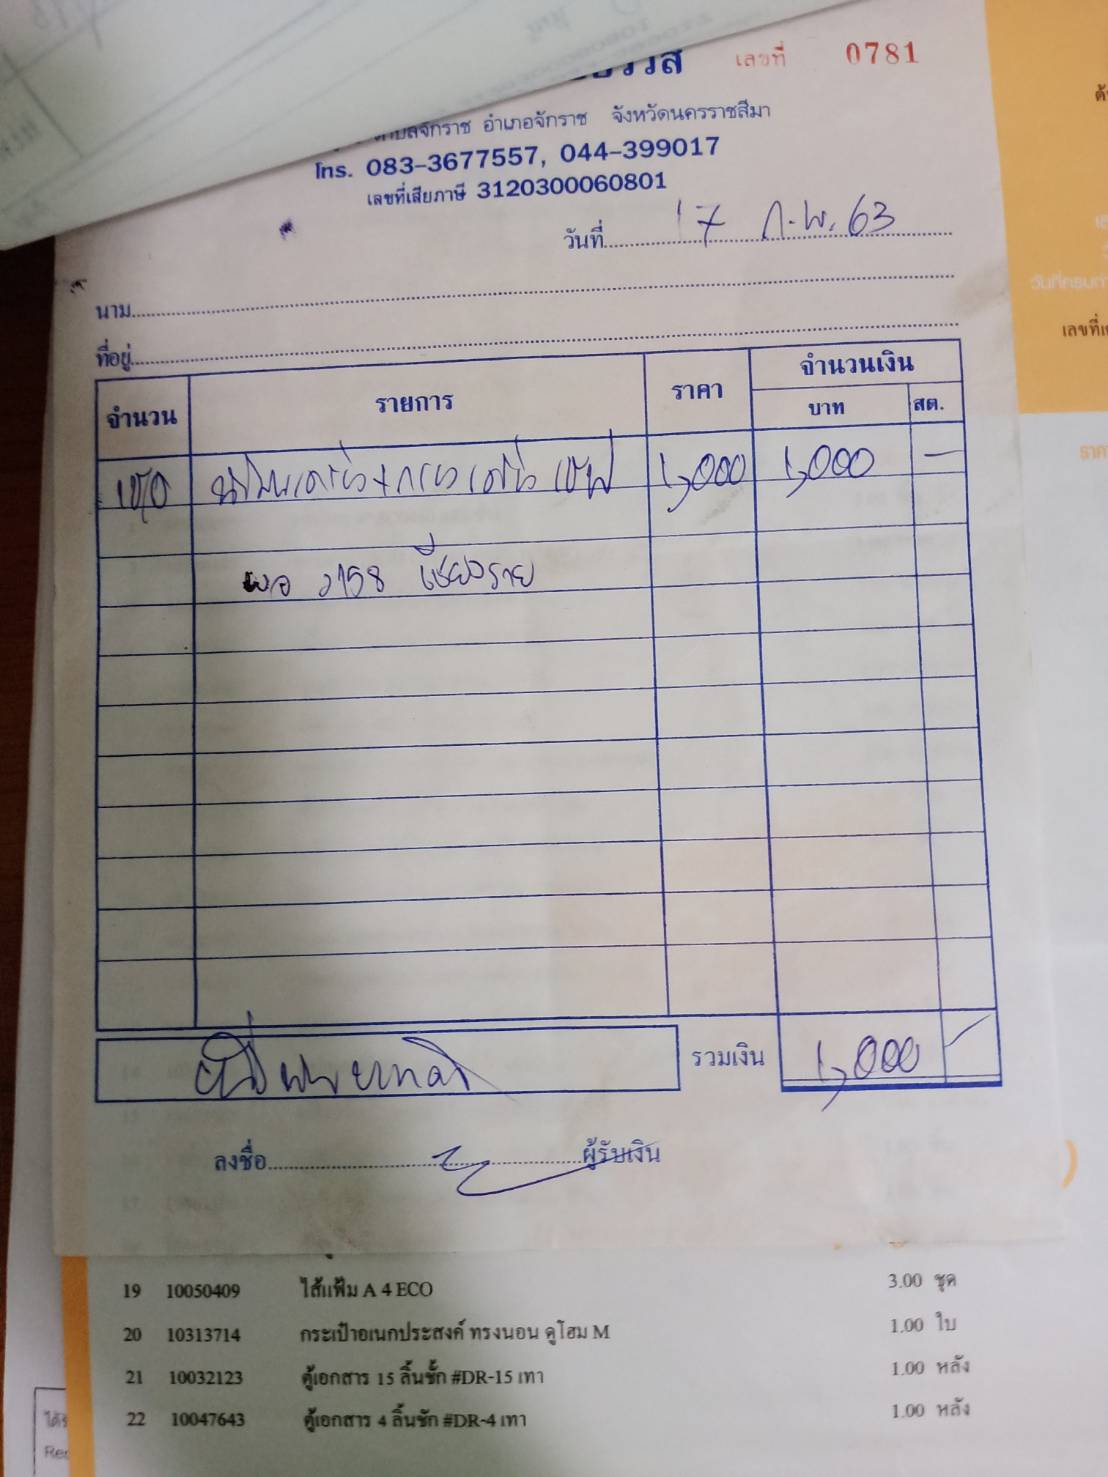 เลขที่ 0781
อำเภอจักราช จังหวัดนครราชสีมา
โทร. 083-3677557, 044-399017
เลขที่เสียภาษี 3120300060801
วันที่ 17 ก.พ. 63
นาม
ที่อยู่
จำนวน รายการ ราคา จำนวนเงิน
บาท สต.
น้ำมันเครื่อง+กรองเครื่อง 1,000 1,000 –
2158 เชียงราย
หนึ่งพันบาทถ้วน รวมเงิน 1,000 –
ลงชื่อ ผู้รับเงิน
19 10050409 ไส้แฟ้ม A 4 ECO 3.00 ชุด
20 10313714 กระเป๋าอเนกประสงค์ ทรงนอน คูโฮม M 1.00 ใบ
21 10032123 ตู้เอกสาร 15 ลิ้นชัก #DR-15 เทา 1.00 หลัง
22 10047643 ตู้เอกสาร 4 ลิ้นชัก #DR-4 เทา 1.00 หลัง